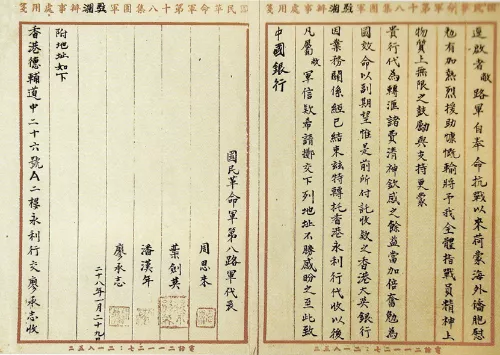 逕啟者敝路軍自奉命抗戰以來荷蒙海外僑胞慰
勉有加熱烈援助慷慨輸將予我全體指戰員精神上
物質上無限之鼓勵與支持更蒙
貴行代為轉滙諸費清神欽感之餘益當加倍奮勉為
國效命以副期望惟是前所付託收款之香港大英銀行
因業務關係經已結束玆特轉托香港永利行代收以後
凡屬敝軍信欵希請擲交下列地址不勝感盼之至此致
中國銀行
國民革命軍第八路軍代表
周恩来
葉劍英
潘漢年
廖承志
二十八年一月二十九日
附地址如下
香港德輔道中二十六號A二樓永利行交廖承志收
民革命軍第十八集團軍
辦事處用箋